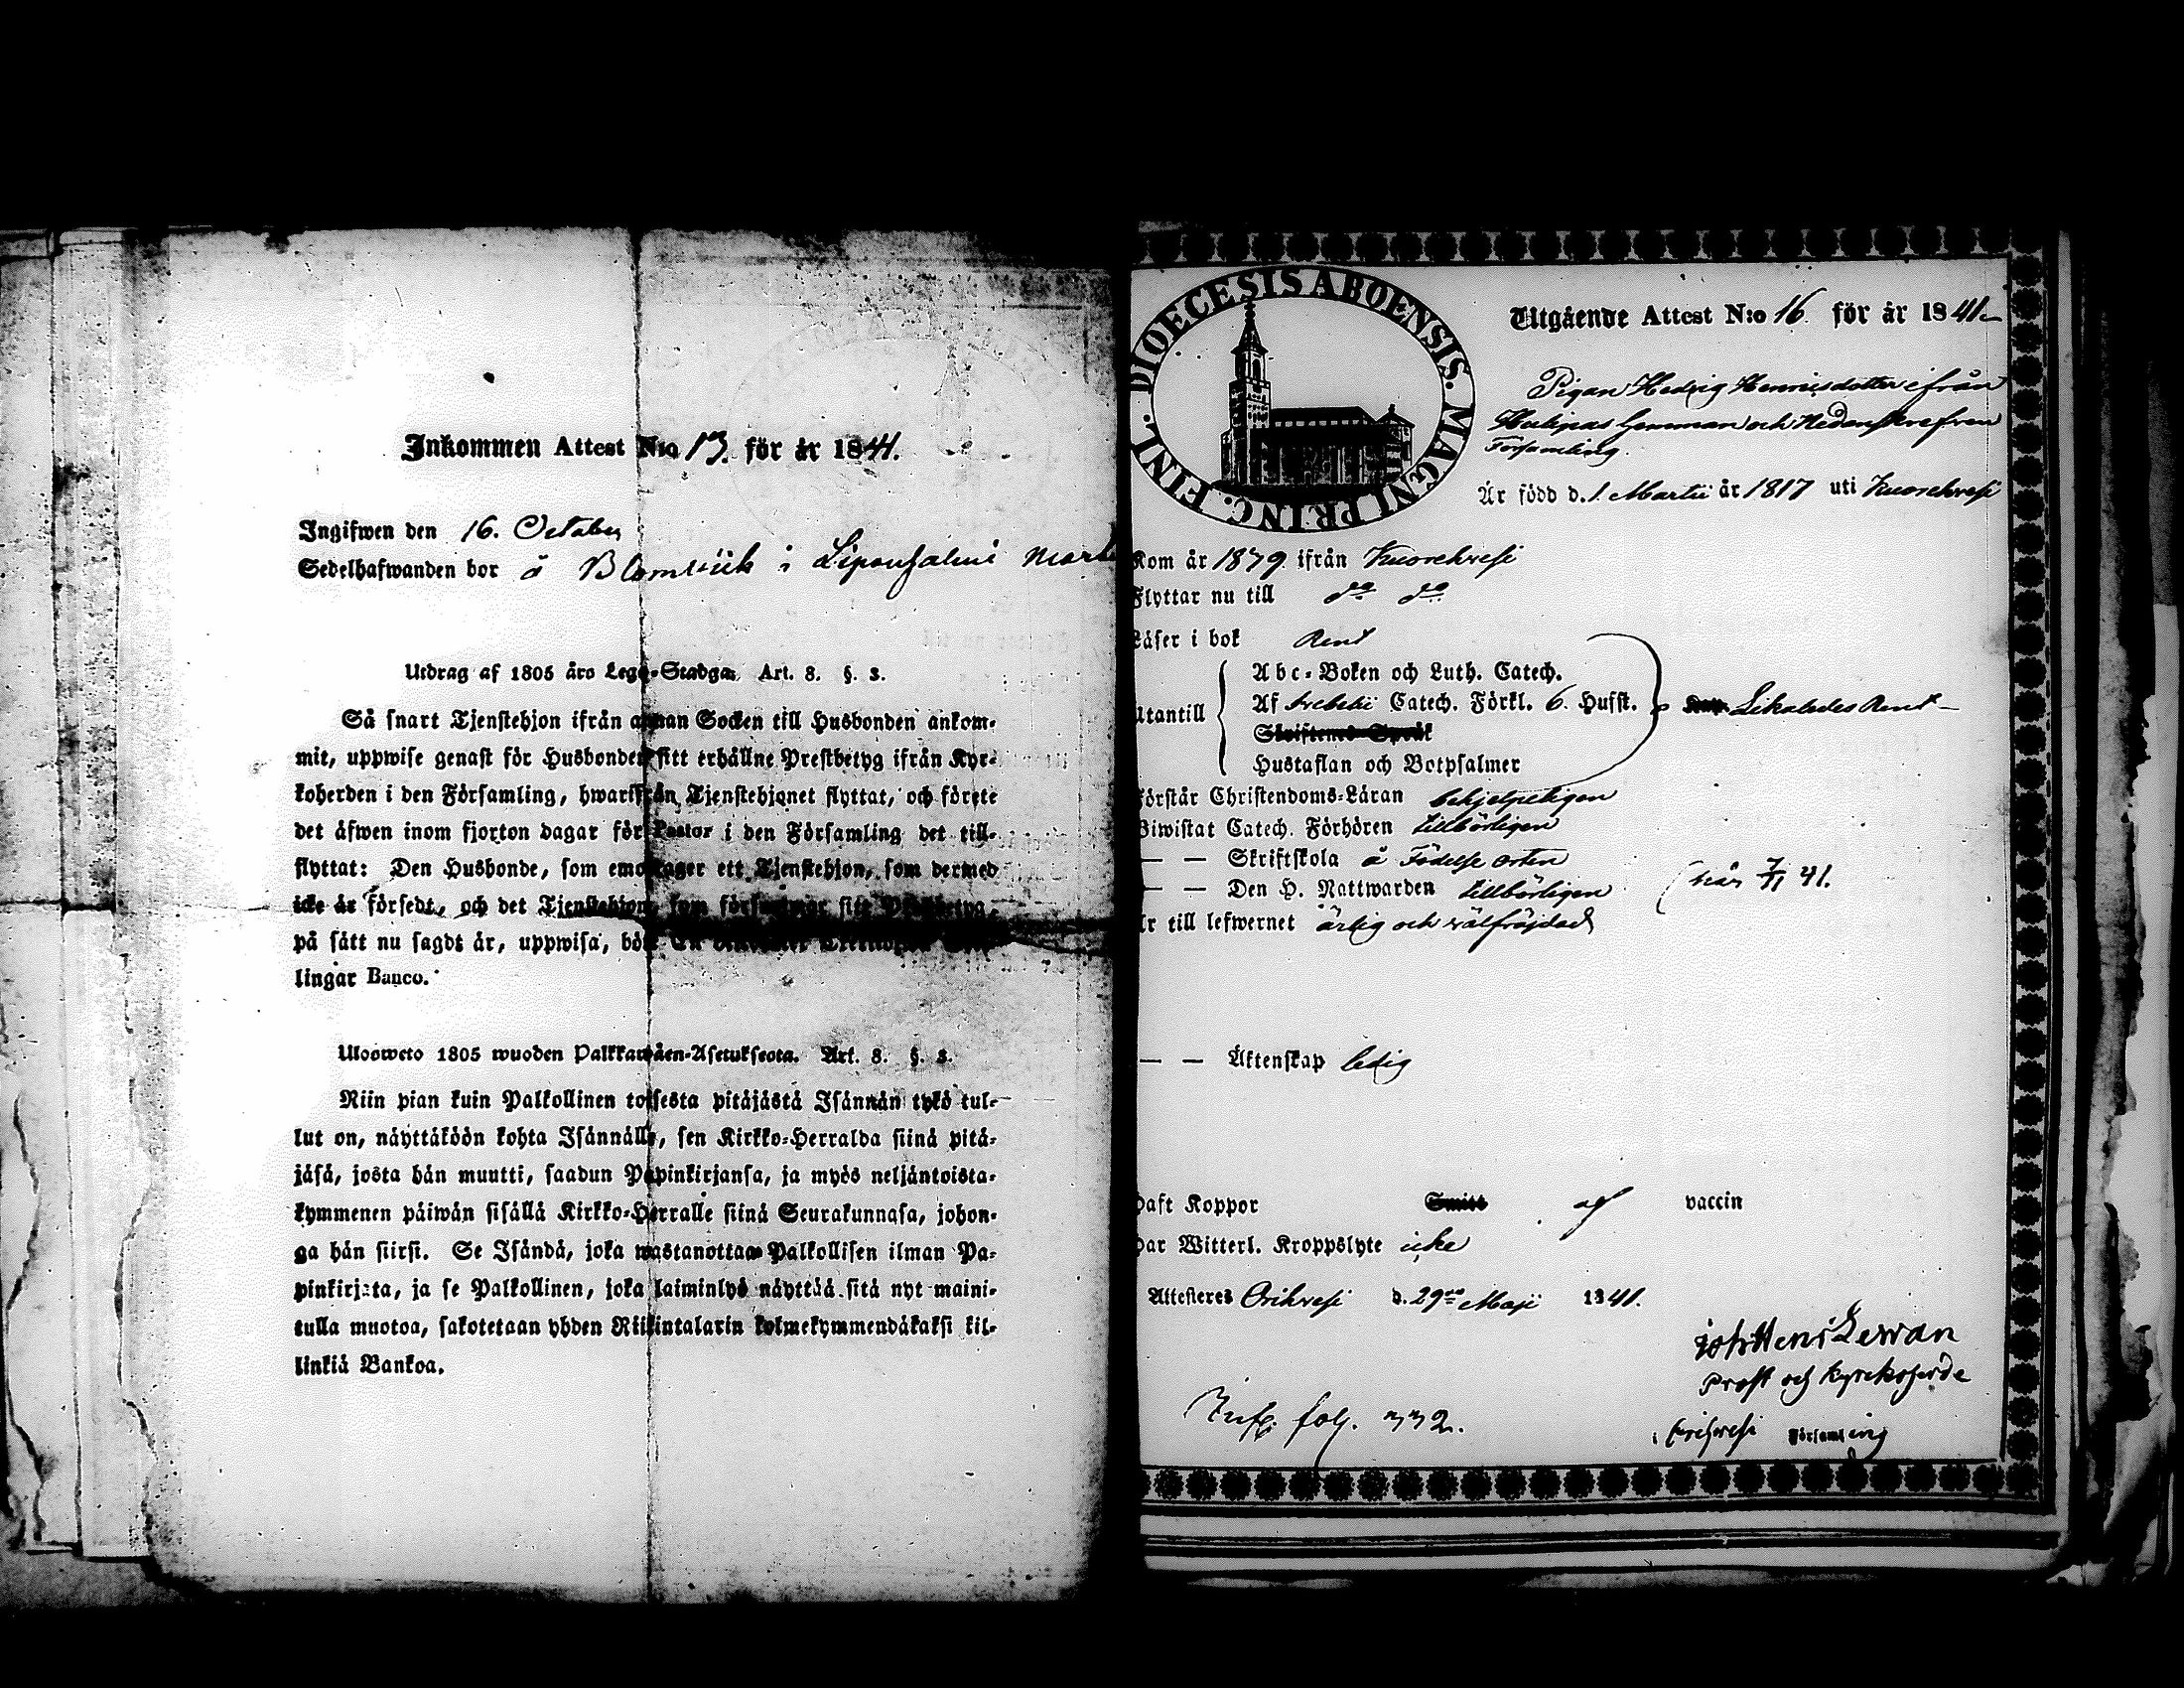 Inkommen Attest N:o 13. för år 1841.
Ingifwen den 16. October
Sedelhafwanden bor å Blomvik i
Utdrag af 1805 års Lego-Stadga. Art. 8. §. 3.
Så snart Tjenstehjon ifrån annan Socken till Husbonden ankom-
mit, uppwise genast för Husbonden sitt erhållne Prestbetyg ifrån Kyr-
koherden i den Församling, hwarifrån Tjenstehjonet flyttat, och förete
det äfwen inom fjorton dagar för Pastor i den Församling det till-
flyttat: Den Husbonde, som emottager ett Tjenstehjon, som dermed
icke är försedt, och det Tjenstehjon, som försummar sitt Prestbetyg,
på sätt nu sagdt är, uppwisa, böte En
lingar Banco.
Ulosweto 1805 wuoden Palkkawäen-Asetuksesta. Art. 8. §. 3.
Niin pian kuin Palkollinen toisesta pitäjästä Isännän tykö tul-
lut on, näyttäköön kohta Isännälle, sen Kirkko-Herralda siinä pitä-
jäsä, josta hän muutti, saadun Papinkirjansa, ja myös neljäntoista-
kymmenen päiwän sisällä Kirkko-Herralle siinä Seurakunnasa, johon-
ga hän siirsi. Se Isändä, joka wastanottaa Palkollisen ilman Pa-
pinkirjata, ja se Palkollinen, joka laiminlyö näyttää sitä nyt maini-
tulla muotoa, sakotetaan yhden Riikintalarin kolmekymmendäkaksi kil-
linkiä Bankoa.
DIOECESIS ABOENSIS. MAGNI PRINC. FINL.
Utgående Attest N:o 16. för år 1841
Pigan Hedvig Henricsdotter ifrån
Församling.
Är född d. 1 Martii år 1817 uti Kuorehvesi
Kom år 1839 ifrån Kuorehvesi
Flyttar nu till do do
Läser i bok Rent
Abc-Boken och Luth. Catech.
Utantill Af Svebelii Catech. Förkl. 6. Hufst. Likaledes Rent
Skriftenes Språk
Hustaflan och Botpsalmer
Förstår Christendoms-Läran behjelpeligen
Biwistat Catech. Förhören tillbörligen
— — Skriftskola å Födelse orten
— — Den H. Nattwarden tillbörligen (här 7/11 41.
Är till lefwernet ärlig och välfräjdad
— — Äktenskap ledig
Haft Koppor Smitt af vaccin
Har Witterl. Kroppslyte icke
Attesteres Orihvesi d. 29de Maji 1841.
Joh Henr Lewan
Prost och Kyrkoherde
i Orihvesi Församling
fol. 332.